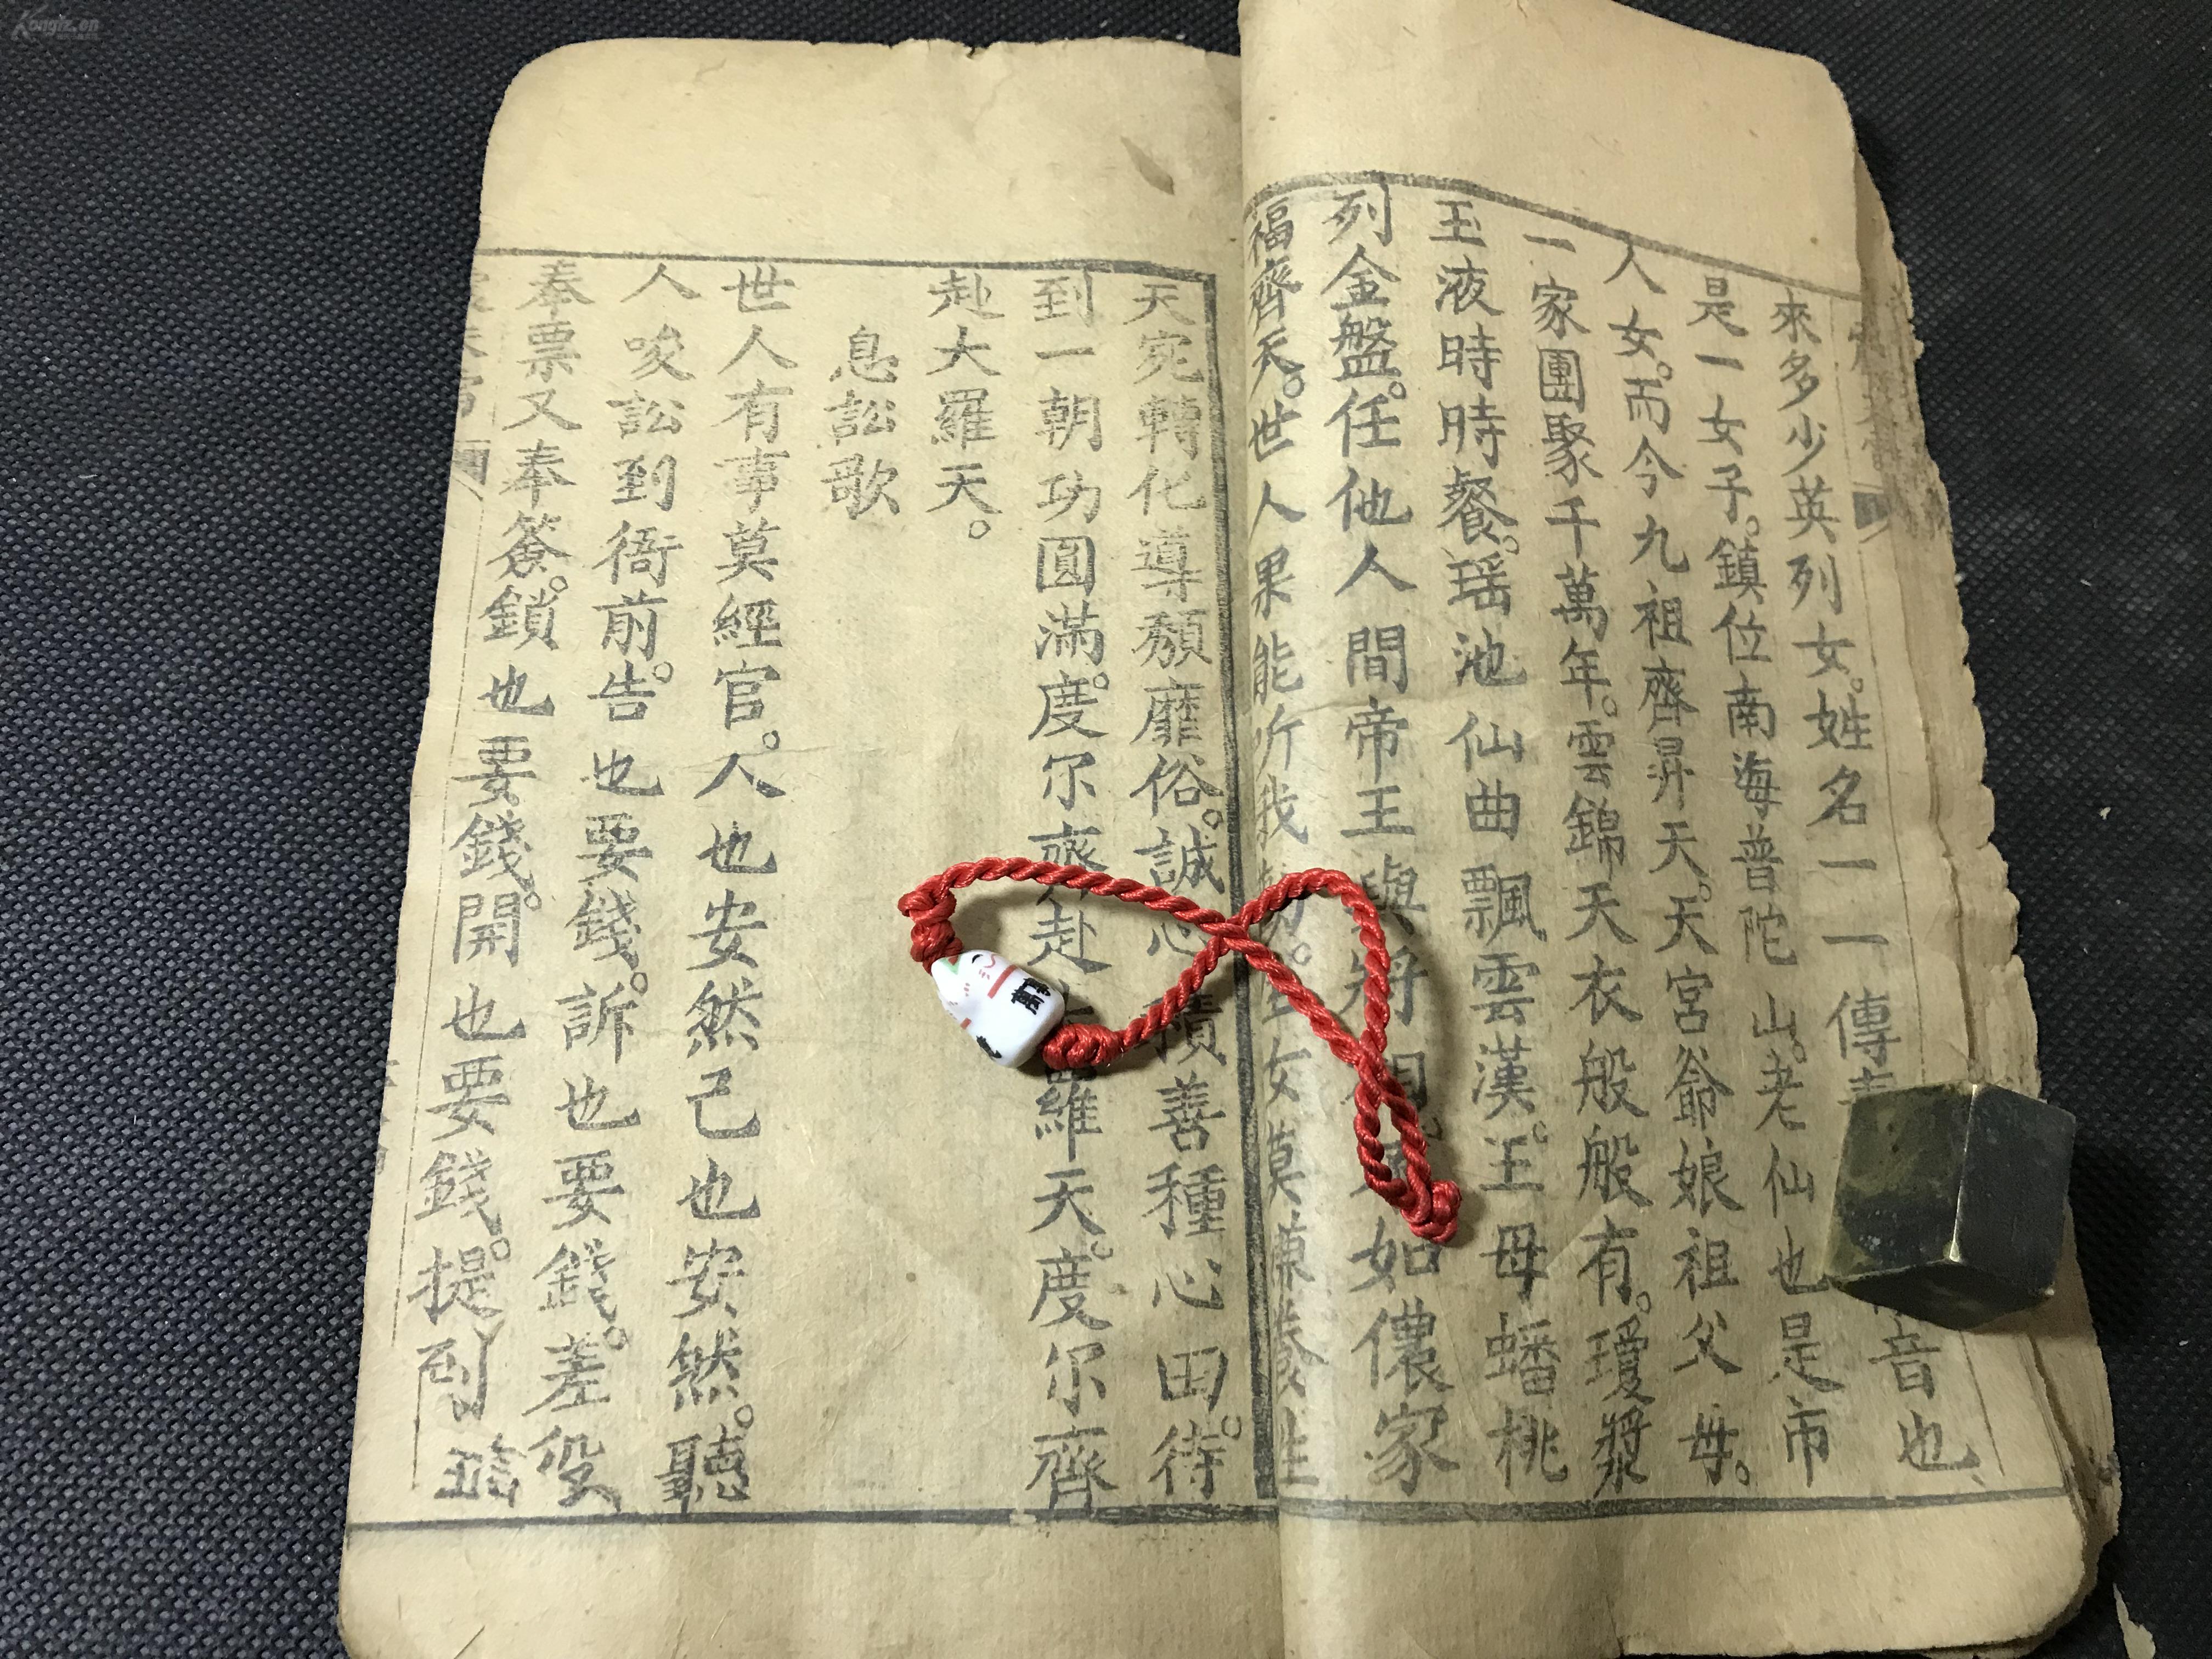 來多少英列女。姓名一一傳 音也
是一女子。鎮位南海普陀山。老仙也是市
人女。而今九祖齊昇天。天宮爺娘祖父母。
一家團聚千萬年。雲錦天衣般般有。瓊漿
玉液時時餐。瑶池仙曲飄雲漢。王母蟠桃
列金盤。任他人間帝王與將 如儂家
福齊天。世人果能听我 女莫 生
天宛轉化導頹靡俗。誠心積善種心田。待
到一朝功圓滿。度尔齊赴 羅天。度尔齊
赴大羅天。
息訟歌
世人有事莫經官。人也安然己也安然。聽
人唆訟到衙前。告也要錢。訴也要錢。差役
奉票又奉簽。鎖也要錢。開也要錢。提到
Kongfz.cn
萬